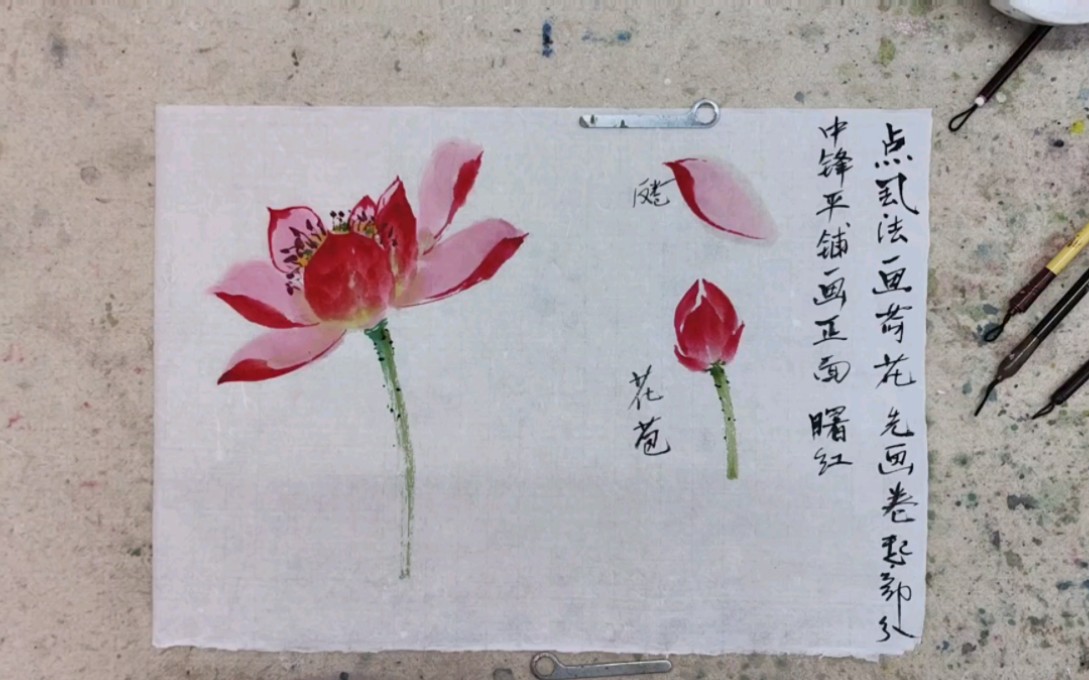 点虱法画荷花 先画卷起部分
中锋平铺画正面 曙红
花苞